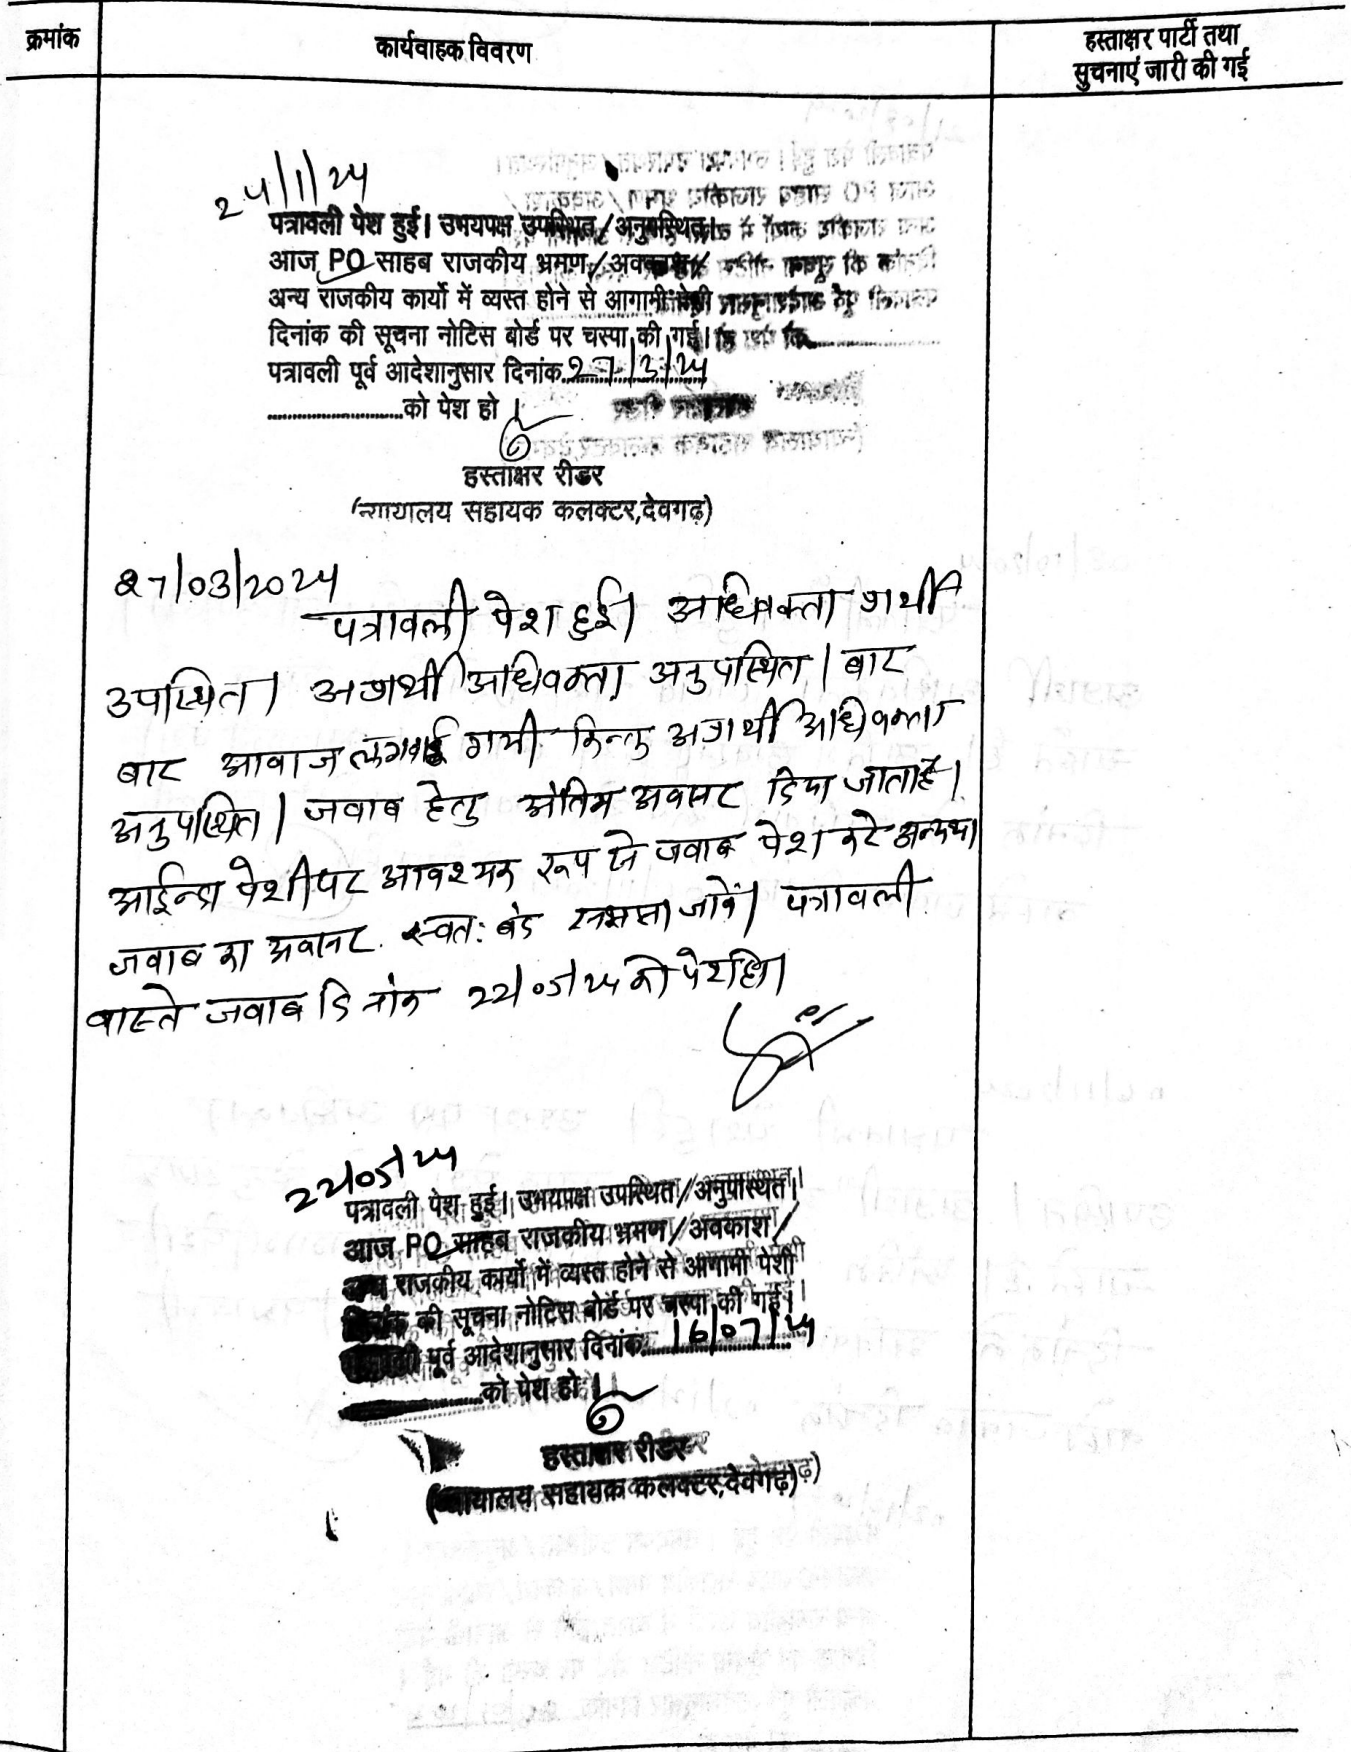 क्रमांक
कार्यवाहक विवरण
हस्ताक्षर पार्टी तथा
सुचनाएं जारी की गई
पत्रावली पेश हुई। उभयपक्ष उपस्थित/अनुपस्थित।
आज PO साहब राजकीय भ्रमण/अवकाश/
अन्य राजकीय कार्यो में व्यस्त होने से आगामी पेशी
दिनांक की सूचना नोटिस बोर्ड पर चस्पा की गई।
पत्रावली पूर्व आदेशानुसार दिनांक
को पेश हो।
हस्ताक्षर रीडर
(न्यायालय सहायक कलक्टर,देवगढ़)
27/03/2025
पत्रावली पेश हुई। अधिवक्ता प्रार्थी
उपस्थित। अप्रार्थी अधिवक्ता अनुपस्थित। बार
बार आवाज लगवाई गयी किन्तु अप्रार्थी अधिवक्ता
अनुपस्थित। जवाब हेतु अंतिम अवसर दिया जाता है।
आईन्दा पेशी पर आवश्यक रूप से जवाब पेश करे अन्यथा
जवाब का अवसर स्वत: बंद समझा जावें। पत्रावली
वास्ते जवाब दिनांक 22/05/25 को पेश हो।
22/05/25
पत्रावली पेश हुई। उभयपक्ष उपस्थित/अनुपस्थित।
आज PO साहब राजकीय भ्रमण/अवकाश/
अन्य राजकीय कार्यो में व्यस्त होने से आगामी पेशी
दिनांक की सूचना नोटिस बोर्ड पर चस्पा की गई।
पूर्व आदेशानुसार दिनांक 16/07/25
को पेश हो।
हस्ताक्षर रीडर
(न्यायालय सहायक कलक्टर,देवगढ़)